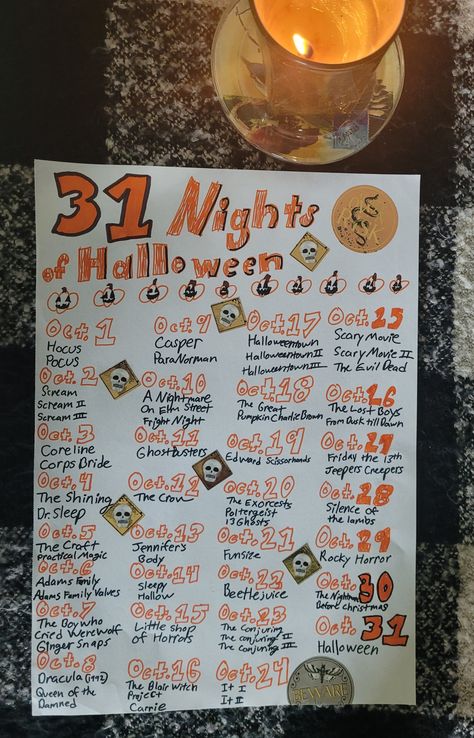 31 Nights
of Halloween
Oct. 1
Hocus
Pocus
Oct. 2
Scream
Scream II
Scream III
Oct. 3
Coreline
Corps Bride
Oct. 4
The Shining
Dr. Sleep
Oct. 5
The Craft
Practical Magic
Oct. 6
Adams Family
Adams Family Values
Oct. 7
The Boy who
Cried Werewolf
Ginger Snaps
Oct. 8
Dracula (1992)
Queen of the
Damned
Oct. 9
Casper
ParaNorman
Oct. 10
A Nightmare
On Elm Street
Fright Night
Oct. 11
Ghostbusters
Oct. 12
The Crow
Oct. 13
Jennifer's
Body
Oct. 14
Sleepy
Hollow
Oct. 15
Little shop
of Horrors
Oct. 16
The Blair Witch
Project
Carrie
Oct. 17
Halloweentown
Halloweentown II
Halloweentown III
Oct. 18
The Great
Pumpkin Charlie Brown
Oct. 19
Edward Scissorhands
Oct. 20
The Exorcests
Poltergeist
13 Ghosts
Oct. 21
Funsize
Oct. 22
Beetlejuice
Oct. 23
The Conjuring
The Conjuring II
The Conjuring III
Oct. 24
It I
It II
Oct. 25
Scary Movie
Scary Movie II
The Evil Dead
Oct. 26
The Lost Boys
From Dusk till Dawn
Oct. 27
Friday the 13th
Jeepers Creepers
Oct. 28
Silence of
the lambs
Oct. 29
Rocky Horror
Oct. 30
The Nightmare
Before Christmas
Oct. 31
Halloween
BEWARE